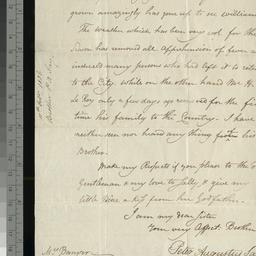 grown amazingly has gone up to see William
The weather which has been very col for the
Season has removed all Apprehension of fever &
induced many persons who had left it to retu
to the City while on the other hand Mr H.
Le Roy only a few days ago removed for the fir
time his family to the Country. I have
neither seen nor heard any thing from his
Brother.
Make my Respects if you please to the O
Gentleman & my love to Sally & give my
little Niece a Kiss from her Godfather.
I am my dear Sister
Your very Affect. Brother
Peter Augustus Ja
Mrs Banyer